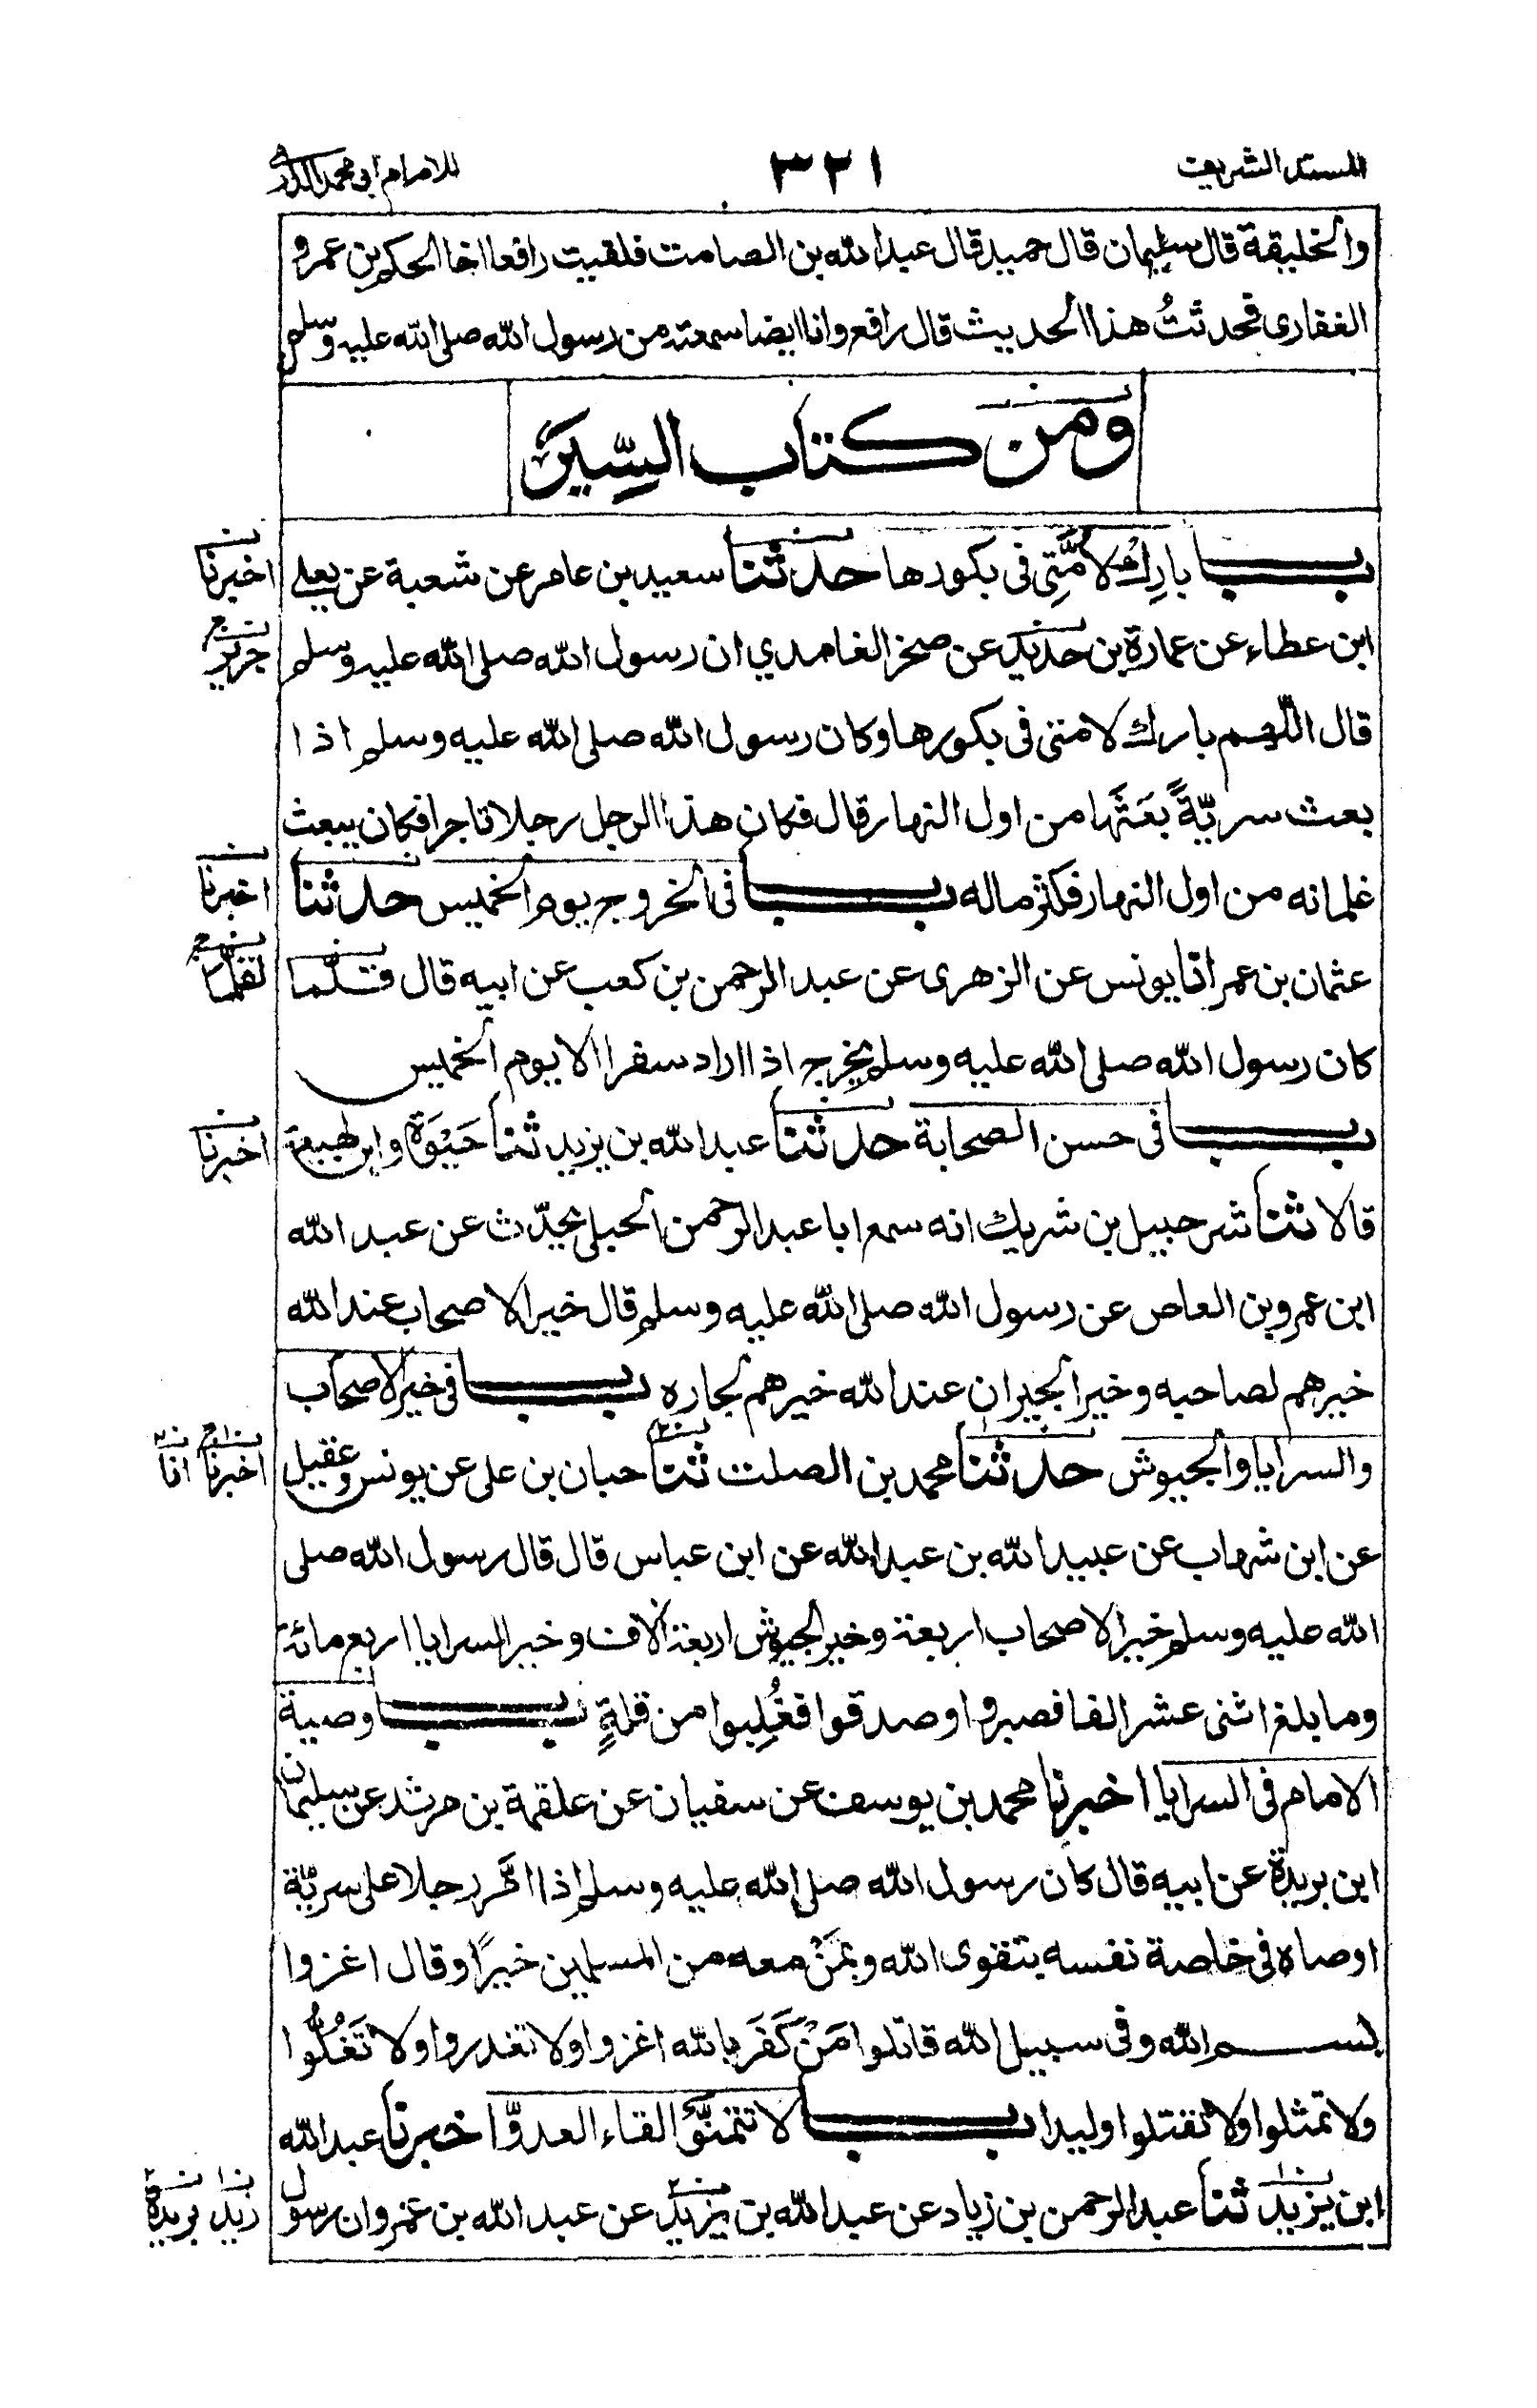 المسند الشريف ٣٢١ للامام ابى محمد الدارمى
والخليقة قال سليمان قال حميد قال عبد الله بن الصامت فلقيت رافعا اخا الحكم بن عمرو
الغفارى فحدثتُ هذا الحديث قال رافع وانا ايضا سمعته من رسول الله صلى الله عليه وسلم
ومن كتاب السِّيَرِ
بــاب بارِكْ لامَّتِى فى بكورها حدثنا سعيد بن عامر عن شعبة عن يعلى اخبرنا
ابن عطاء عن عمارة بن حديد عن صخر الغامدي ان رسول الله صلى الله عليه وسلم جرير
قال اللّهم بارك لامتى فى بكورها وكان رسول الله صلى الله عليه وسلم اذا
بعث سريّةً بعَثَها من اول النهار قال فكان هذا الرجل رجلا تاجرا فكان يبعث
غلمانه من اول النهار فكثر ماله بــاب فى الخروج يوم الخميس حدثنا اخبرنا
عثمان بن عمر انا يونس عن الزهرى عن عبد الرحمن بن كعب عن ابيه قال قلّما لقلّما
كان رسول الله صلى الله عليه وسلم يخرج اذا اراد سفرا الا يوم الخميس
بــاب فى حسن الصحابة حدثنا عبد الله بن يزيد ثنا حَيْوَة وابن لهيعة اخبرنا
قالا ثنا شرحبيل بن شريك انه سمع ابا عبد الرحمن الحبلى يحدّث عن عبد الله
ابن عمرو بن العاص عن رسول الله صلى الله عليه وسلم قال خير الاصحاب عند الله
خيرهم لصاحبه وخير الجيران عند الله خيرهم لجاره بــاب فى خير الاصحاب
والسرايا والجيوش حدثنا محمد بن الصلت ثنا حبان بن على عن يونس وعقيل اخبرنا انا
عن ابن شهاب عن عبيد الله بن عبد الله عن ابن عباس قال قال رسول الله صلى
الله عليه وسلم خير الاصحاب اربعة وخير الجيوش اربعة الاف وخير السرايا اربع مائة
وما بلغ اثنى عشر الفا فصبروا وصدقوا فغُلِبوا من قلةٍ بــاب وصية
الامام فى السرايا اخبرنا محمد بن يوسف عن سفيان عن علقمة بن مرثد عن سليمان
ابن بريدة عن ابيه قال كان رسول الله صلى الله عليه وسلم اذا امَّر رجلا على سريّة
اوصاه فى خاصة نفسه بتقوى الله وبمَنْ معه من المسلمين خيرًا وقال اغزوا
بســم الله وفى سبيل الله قاتلوا مَنْ كَفَرَ بالله اغزوا ولا تغدروا ولا تَغُلُّوا
ولا تمثلوا ولا تقتلوا وليدا بــاب لا تتمنَّوْا لقاء العدوّ اخبرنا عبد الله
ابن يزيد ثنا عبد الرحمن بن زياد عن عبد الله بن يزيد عن عبد الله بن عمرو ان رسول زيد بريدة